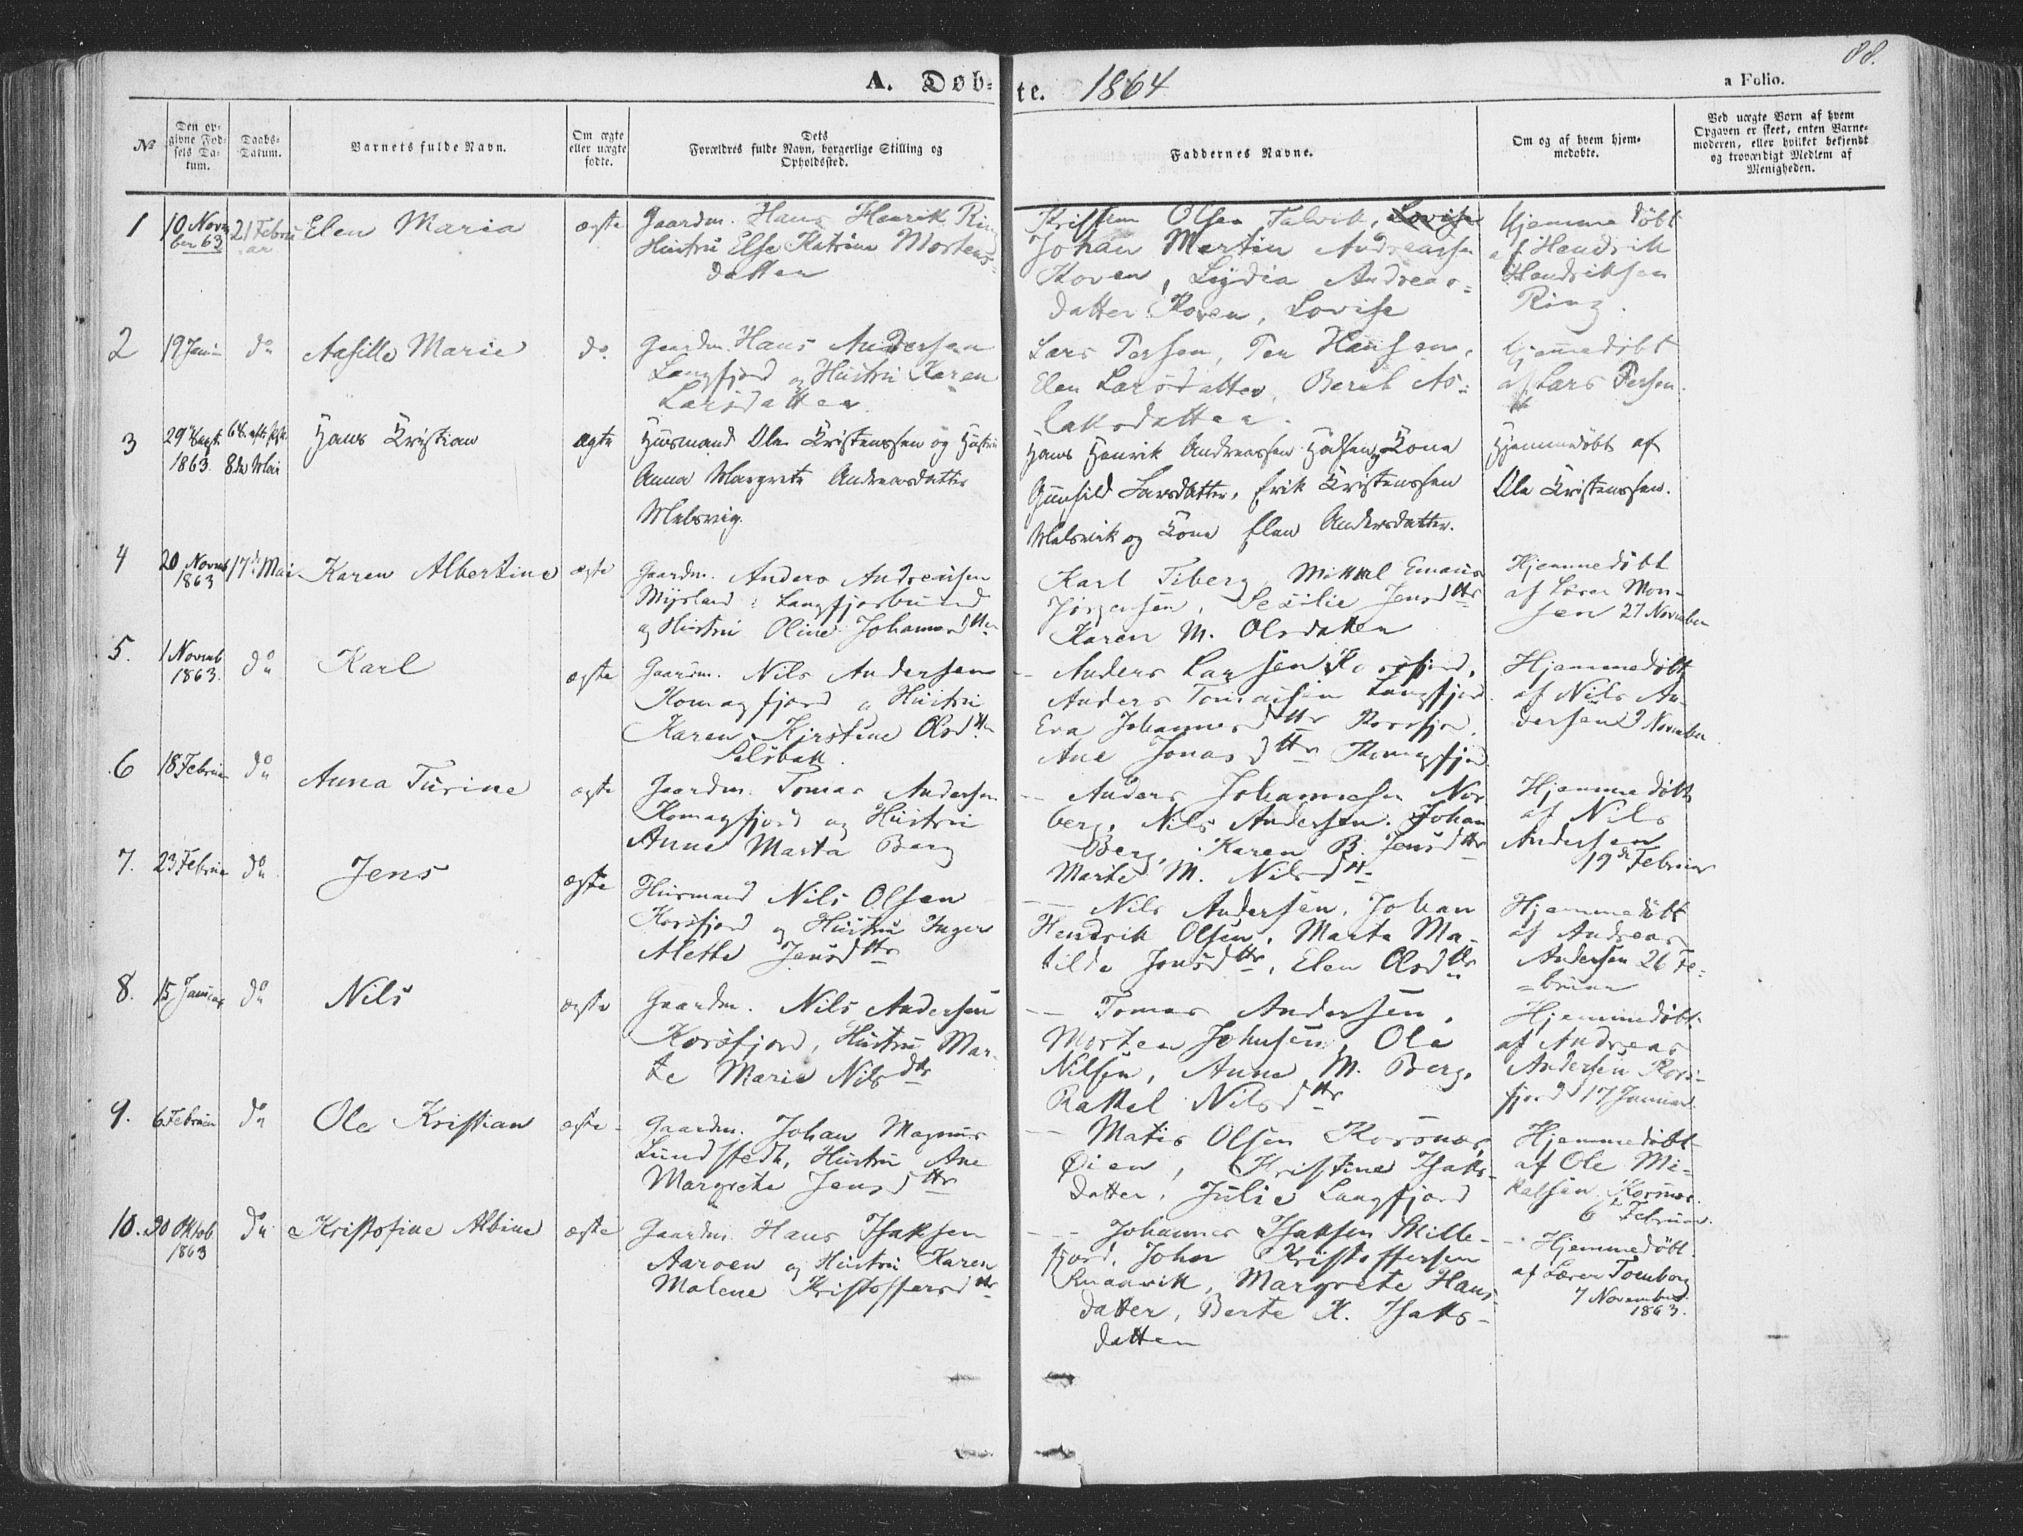 88.
A. Døb-te. 1864
a Folio.
№
Den opgivne Fødsels Datum.
Daabs-Datum.
Barnets fulde Navn.
Om ægte eller uægte fødte.
Dets Forældres fulde Navn, borgerlige Stilling og Opholdssted.
Faddernes Navne.
Om og af hvem hjemmedøbte.
Ved uægte Børn af hvem Opgaven er skeet, enten Barnemoderen, eller hvilket bekjendt og troværdigt Medlem af Menigheden.
1
10 Novem
ber 63
21 Febru
ar
Elen Maria
ægte
Gaardm. Hans Henrik Ring
Hustru Else Katrine Mortens-
datter
Olsen Talvik, Lovise
Johan Martin Andreassen
Koven, Lydia Andreas-
datter Koven, Lovise
Hjemmedøbt
af Hendrik
Hendriksen
Ring.
2
19 Janu
do
Aasille Marie
do.
Gaardm. Hans Andersen
Langfjord og Hustru Karen
Larsdatter.
Lars Persen, Per Hansen,
Elen Larsdatter, Berit As-
laksdatter.
Hjemmedøbt
af Lars Persen.
3
29
1863
8de Mai
Hans Kristian
ægte
Huusmand Ole Kristenssen og Hustru
Anna Margrete Andreasdatter
Melsvig.
Hans Henrik Andreassen Kone
Gunhild Larsdatter, Erik Kristenssen
Melsvik og Kone Elen Andersdatter.
Hjemmedøbt af
Ole Kristenssen.
4
20 Novem
1863
17de Mai
Karen Albertine
ægte
Gaardm. Anders Andreassen
Myrland i Langfjorbund
og Hustru Oline Johannesdtter
Karl Tiberg, Mikkel Emaus
Jørgensen, Sesilie Jensdttr
Karen M. Olsdatter
Hjemmedøbt
af Lærer Mon-
sen 27 November
5.
1 Novemb
1863.
do
Karl
ægte
Gaardm. Nils Andersen
Komagfjord og Hustru
Karen Kirstine Olsdttr
— Anders Larsen Korsfjord,
Anders Tomassen Langfjord
Eva Johannesdttr Korsfjor,
Ane Jonasdttr Komagfjor.
Hjemmedøbt
af Nils An-
dersen 9 November
6
18 Februar
do
Anna Turine
ægte
Gaardm. Tomas Andersen
Komagfjord og Hustru
Anne Marta Berg
— Anders Johannesen Nor
berg, Nils Andersen, Johan
Berg, Karen B. Jensdttr
Marte M. Nilsdtt
Hjemmedøbt
af Nils
Andersen
19de Februar
7.
23 Februar
do
Jens
ægte
Huusmand Nils Olsen
Korsfjord og Hustru Inger
Alette Jensdttr
— Nils Andersen, Johan
Hendrik Olsen, Marta Ma-
tilde Jonsdttr, Elen Olsdttr
Hjemmedøbt
af Andreas
Andersen 26 Fe-
bruar
8.
15 Januar
do
Nils
ægte
Gaardm. Nils Andersen
Korsfjord, Hustru Mar-
te Marie Nilsdtr
— Tomas Andersen,
Morten Johnsen, Ole
Nilsen, Anne M. Berg,
Rakkel Nilsdttr
Hjemmedøbt
af Andreas
Andersen Kors-
fjord 17 Januar.
9.
6 Februar
do
Ole Kristian
ægte
Gaardm. Johan Magnus
Lundstedt, Hustru Ane
Margrete Jensdttr
— Matis Olsen Korsnæs,
Øien, Kristine Isaks-
datter, Julie Langfjord
Hjemmedøbt
af Ole Mi-
kalsen Korsnæs.
6 Februar.
10.
20 Oktob
1863
do
Kristofine Albine
ægte
Gaardm. Hans Isaksen
Aaroen og Hustru Karen
Malene Kristoffersdttr
— Johannes Isaksen Skille-
fjord, John Kristoffersen
Margrete Hans-
datter, Berte K. Isaks-
datter
Hjemmedøbt
af Lærer Tomborg
7 November
1863.